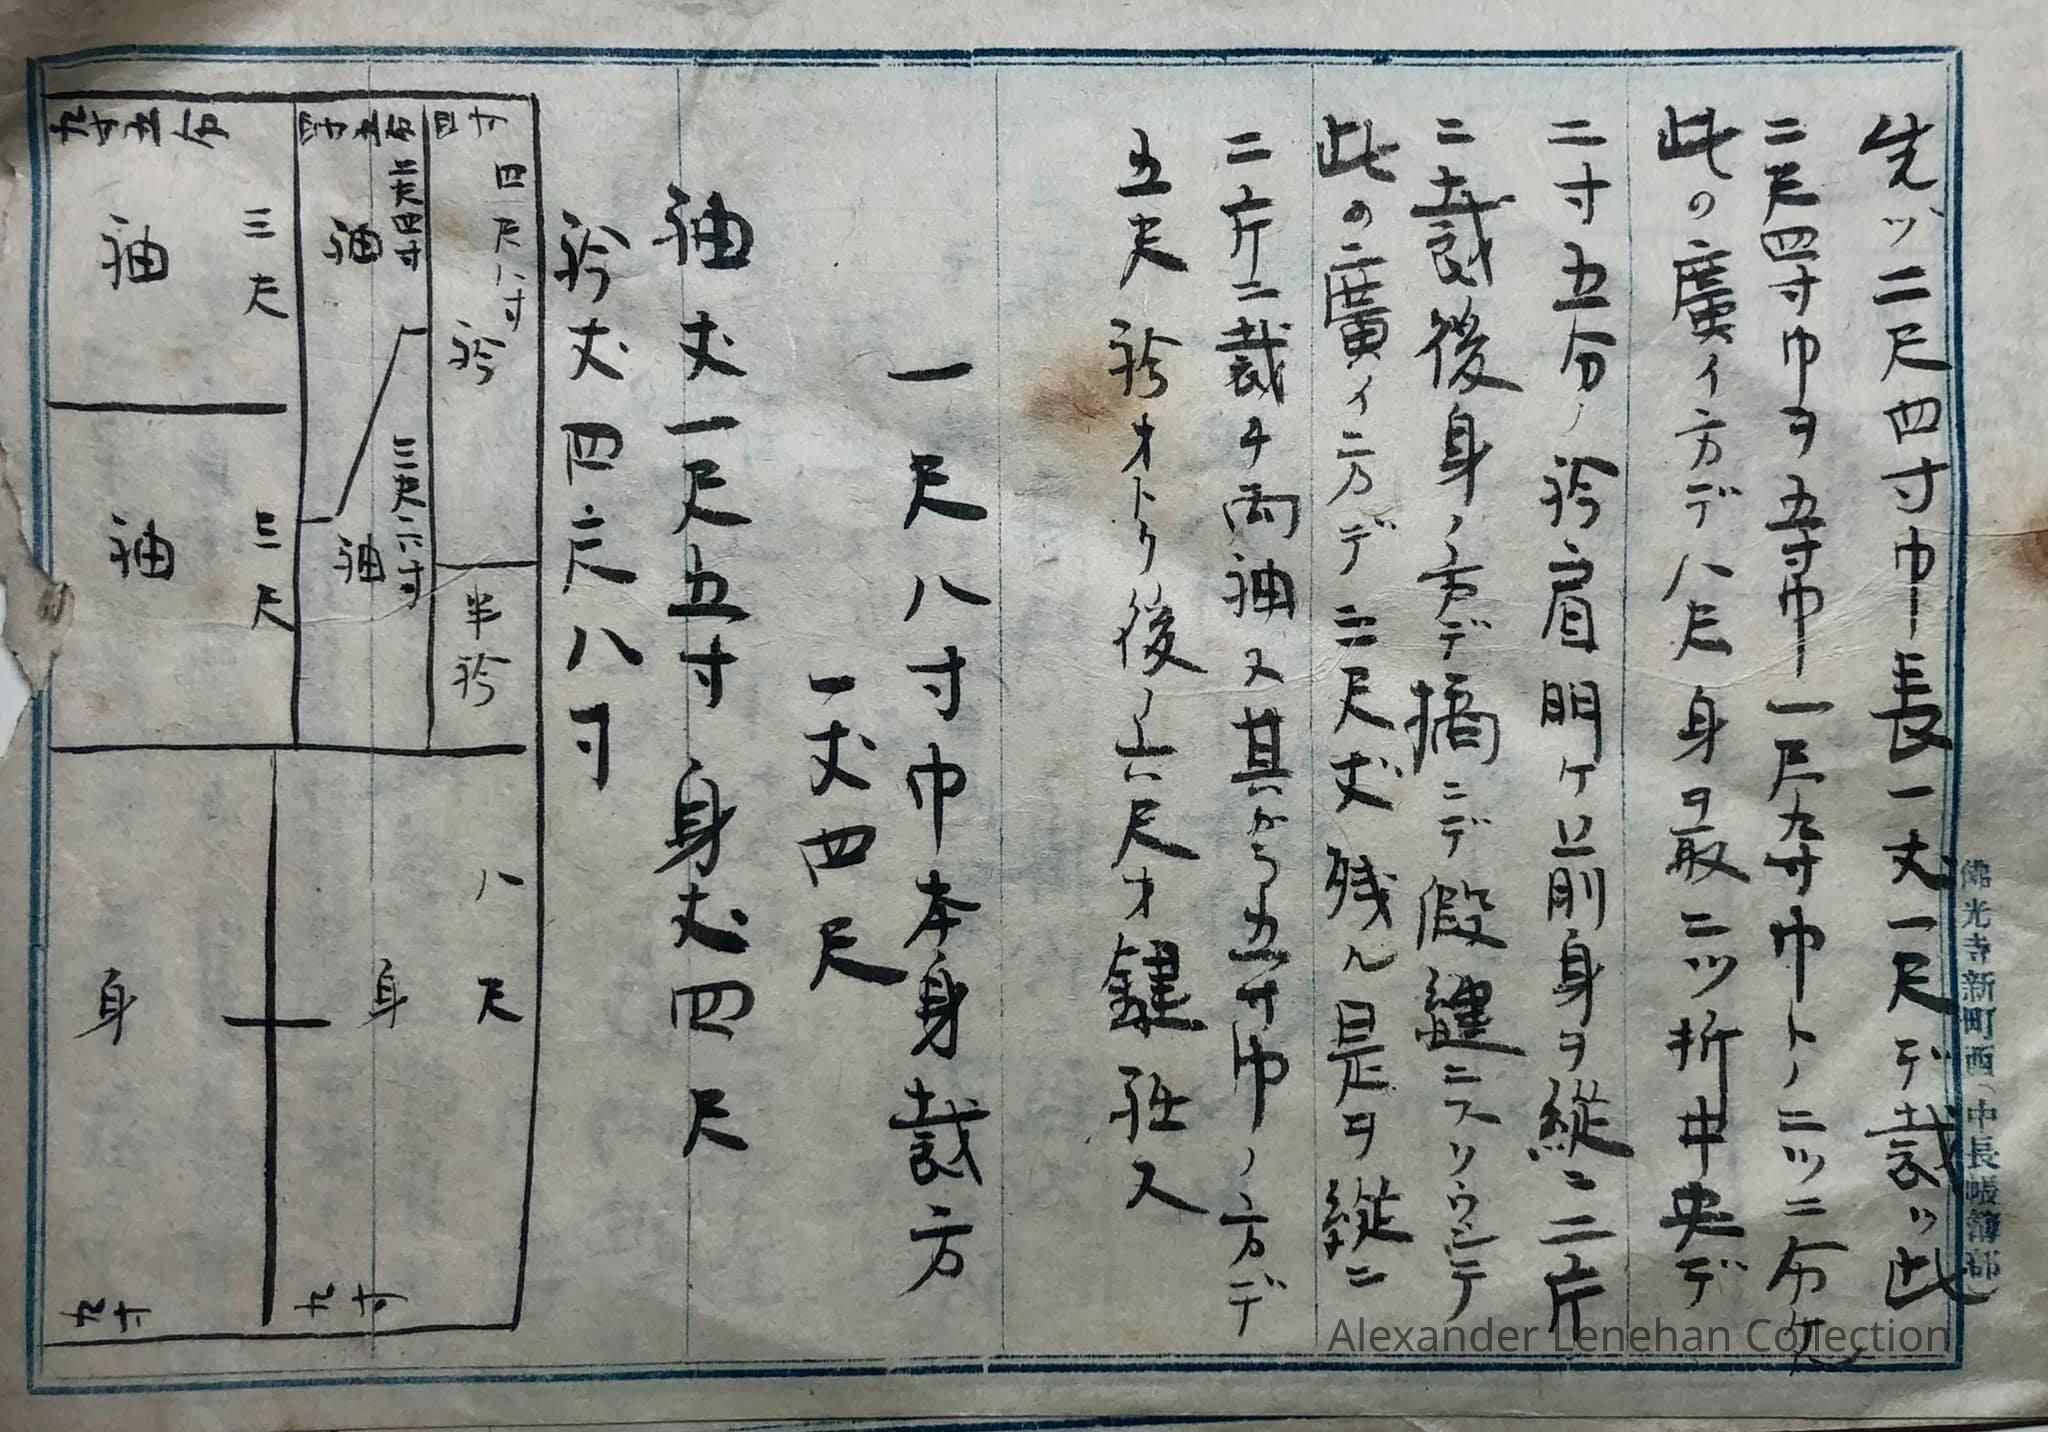 先ヅ二尺四寸巾長一丈一尺デ裁ツ此
二尺四寸巾ヲ五寸巾一尺九寸巾トノ二ツニ分ケ
此の廣イ方デ八尺身ヲ取ニツ折中央デ
二寸五分ノ衿肩明ケ前身ヲ縦ニ二片
ニ裁後身ノ方デ
此の廣イ方デ三尺丈残ル是ヲ縦ニ
二片ニ裁チ両袖又其から五寸巾ノ方デ
五尺衿オトリ後ノ六尺オ
一尺八寸巾本身裁方
一丈四尺
袖丈一尺五寸身丈四尺
衿丈四尺八寸
四寸
四尺八寸
衿
半衿
四寸五分
二尺四寸
袖
三尺六寸
袖
九寸五分
三尺
袖
三尺
袖
八尺
身
身
九寸
九寸
佛光寺新町西(中長帳簿部)
Alexander Lenehan Collection